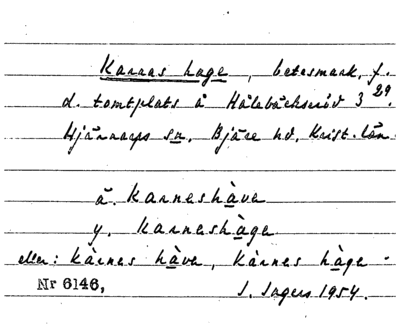 Karnas hage, betesmark, f.
d. tomtplats å Hålebäckseröd 3 29.
Hjärnarps sn, Bjäre hd, Krist. län
ä. karneshàva
y. karneshàge
eller: kàrnes hàva, kàrnes hàge.
Nr 6146, J. Ingers 1954.